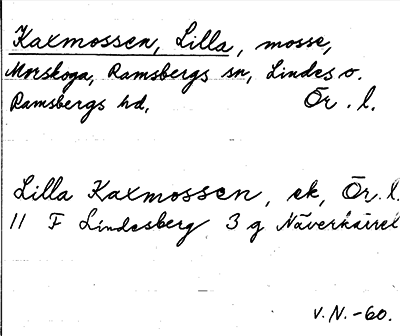 Kaxmossen, Lilla, mosse,
Morskoga, Ramsbergs sn, Lindes o.
Ramsbergs hd, Ör. l.
Lilla Kaxmossen, ek, Ör. l.
11 F Lindesberg 3 g Näverkärret
V. N. -60.